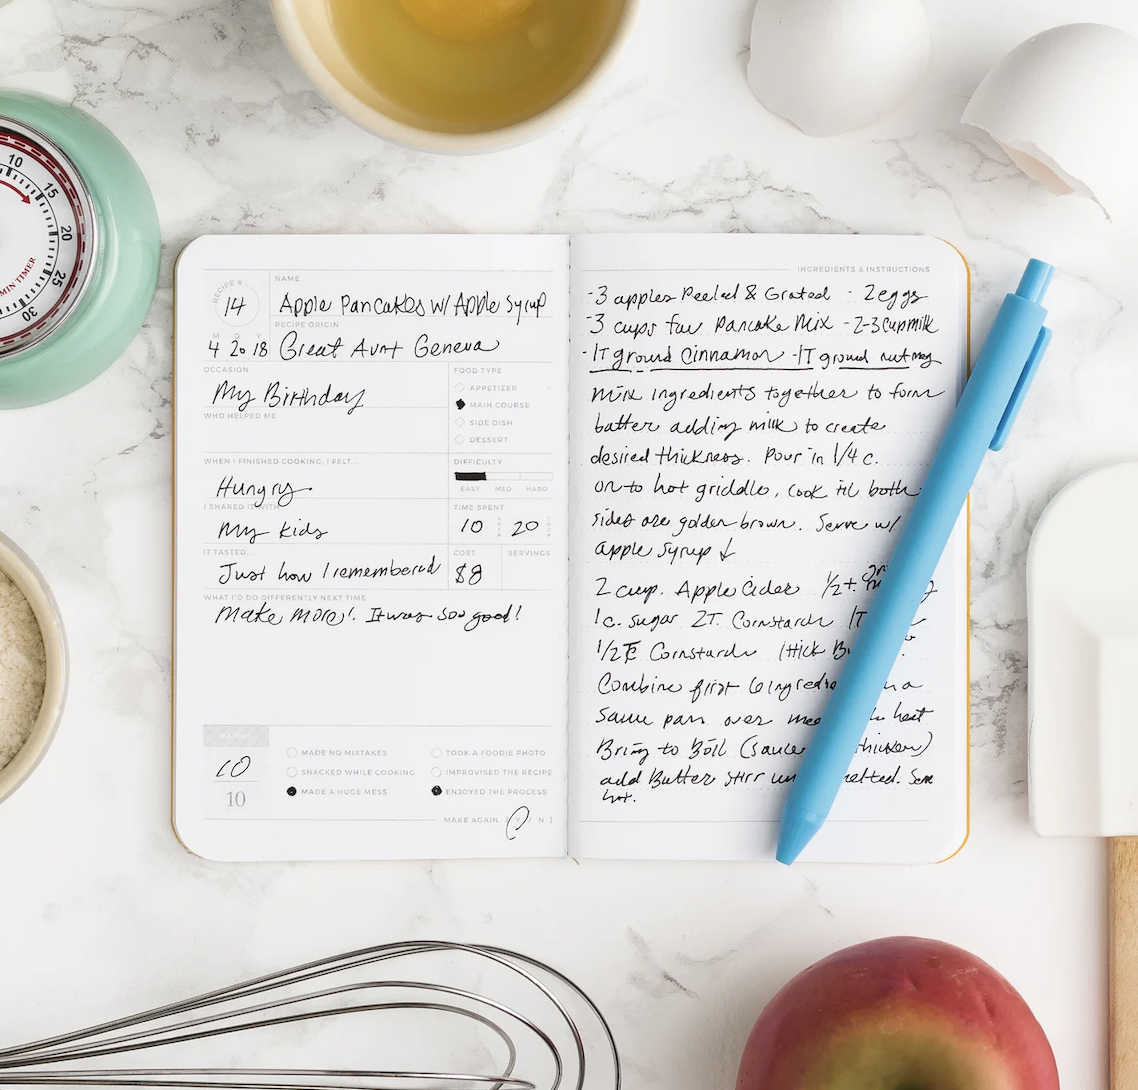 10
15
20
25
30
MIN TIMER
RECIPE #
14
NAME
Apple Pancakes w/ Apple Syrup
M D Y
4 20 18
RECIPE ORIGIN
Great Aunt Geneva
OCCASION
My Birthday
WHO HELPED ME
WHEN I FINISHED COOKING, I FELT...
Hungry
I SHARED IT WITH
My kids
IT TASTED...
Just how I remembered
FOOD TYPE
APPETIZER
MAIN COURSE
SIDE DISH
DESSERT
DIFFICULTY
EASY MED HARD
TIME SPENT
10 20
COST
$8
SERVINGS
WHAT I'D DO DIFFERENTLY NEXT TIME
Make more! It was soo good!
RATING
10
10
MADE NO MISTAKES
SNACKED WHILE COOKING
MADE A HUGE MESS
TOOK A FOODIE PHOTO
IMPROVISED THE RECIPE
ENJOYED THE PROCESS
MAKE AGAIN [ Y / N ]
INGREDIENTS & INSTRUCTIONS
-3 apples Peeled & Grated - 2 eggs
-3 cups fav Pancake Mix - 2-3 cup milk
-1T ground Cinnamon -1T ground nutmeg
Mix ingredients together to form
batter adding milk to create
desired thickness. Pour in 1/4 c.
on to hot griddle, cook til both
sides are golden brown. Serve w/
apple syrup ↓
2 cup. Apple Cider 1/2 t.
1 c. sugar 2T. Cornstarch 1T
1/2 Cornstarch 1 stick
Combine first 6 in a
sauce pan over heat
Bring to Boil (sauce thicken)
add Butter stir melted. Serve
hot.